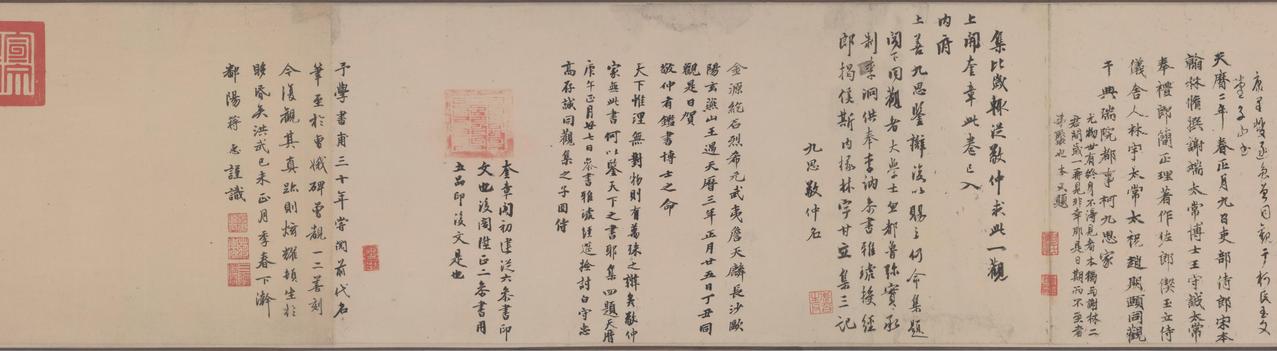 天曆二年春正月九日吏部侍郎宋本
翰林脩撰謝端太常博士王守誠太常
奉禮郎簡正理著作佐郎偰玉立侍
儀舍人林宇太常太祝趙期頤同觀
于典瑞院都事柯九思家
尤物世有終身不得見者本獨與謝林二
君閱歲一再見非幸耶是日期而不至者
集比歲輒從敬仲求此一觀
上開奎章此卷已入
內府
上善九思鑒辨復以賜之何命集題
閣下同觀者大學士忽都魯彌實承
制李泂供奉李訥參書雅琥授經
郎揭傒斯內掾林宇甘立集三記
九思敬仲名
金源紇石烈希元武夷詹天麟長沙歐
陽玄燕山王遇天曆三年正月廿五日丁丑同
觀是日賀
敬仲有鑑書博士之命
天下惟理無對物則有萬殊之辨矣敬仲
家無此書何以鑒天下之書耶集四題天曆
庚午正月廿七日參書雅琥注選檢討白守忠
高存誠同觀集之子閏侍
奎章閣初建從六參書印
文也後閣陞正二參書用
五品印後文是也
予學書甫三十年嘗閱前代名
筆至於曹娥碑曾觀一二善刻
今復觀其真跡則炫耀頓生於
眵昏矣洪武己未正月季春下澣
鄱陽蔣忠謹識